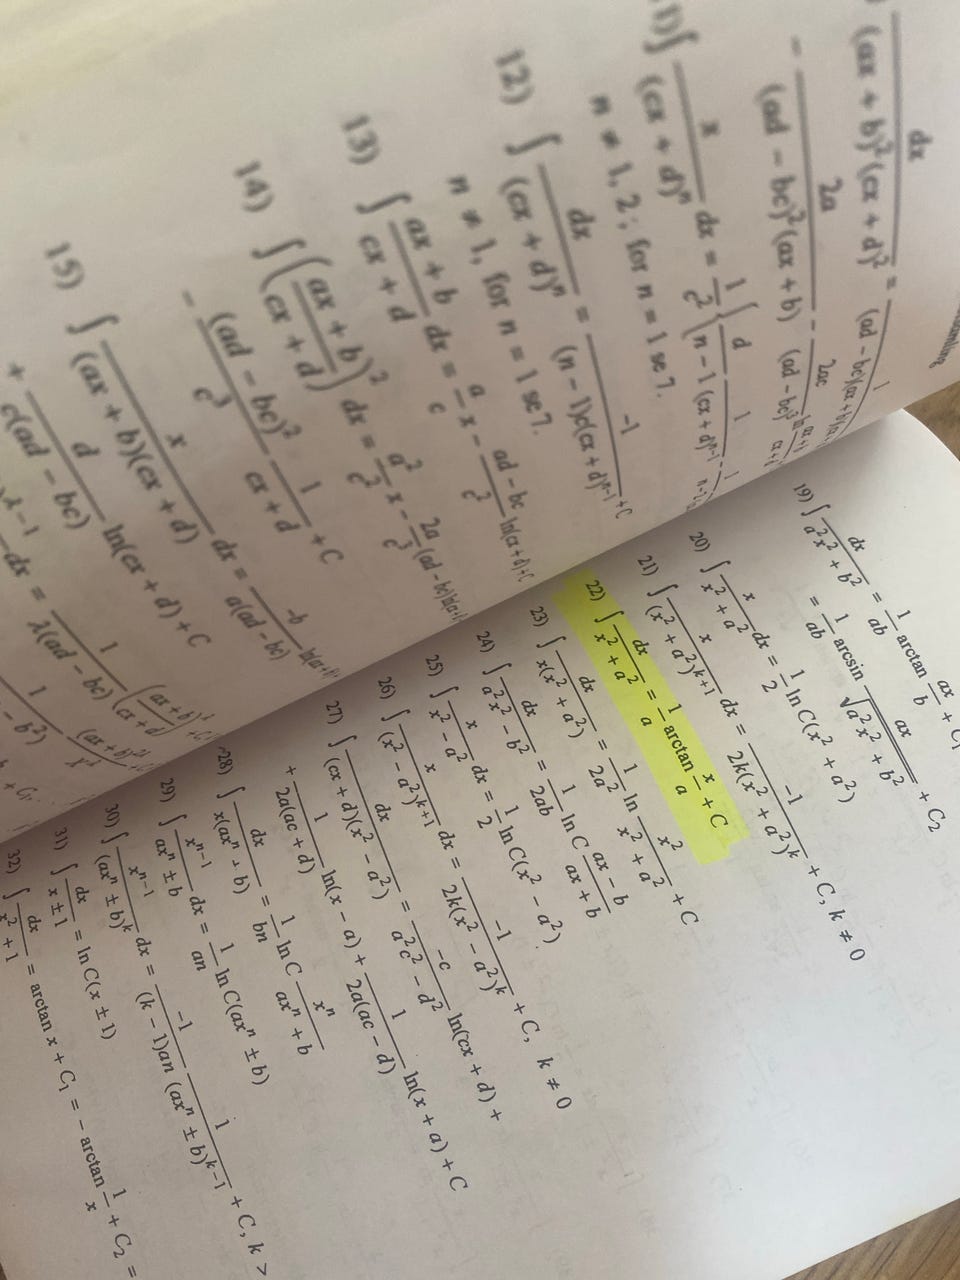 dx
(ax + b)²(cx + d)² =
1
(ad − bc)(ax + b)
−
2a
(ad − bc)²(ax + b)
−
2ac
(ad − bc)³
∫ x/(cx + d)ⁿ dx = 1/c² { d/(n − 1) 1/(cx + d)ⁿ⁻¹ −
n ≠ 1, 2; for n = 1 se 7.
12) ∫ dx/(cx + d)ⁿ = −1/((n − 1)c(cx + d)ⁿ⁻¹) + C
n ≠ 1, for n = 1 se 7.
13) ∫ (ax + b)/(cx + d) dx = a/c x − (ad − bc)/c² ln(cx + d) + C
14) ∫ ((ax + b)/(cx + d))² dx = a²/c² x − 2a/c³ (ad − bc)
− (ad − bc)²/c³ 1/(cx + d) + C
15) ∫ x/((ax + b)(cx + d)) dx = −b/(a(ad − bc))
+ d/(c(ad − bc)) ln(cx + d) + C
dx = 1/(λ(ad − bc)) ((ax + b)/(cx + d))
19) ∫ dx/(a²x² + b²) = 1/(ab) arctan ax/b + C₁
= 1/(ab) arcsin ax/√(a²x² + b²) + C₂
20) ∫ x/(x² + a²) dx = 1/2 ln C(x² + a²)
21) ∫ x/(x² + a²)ᵏ⁺¹ dx = −1/(2k(x² + a²)ᵏ) + C, k ≠ 0
22) ∫ dx/(x² + a²) = 1/a arctan x/a + C
23) ∫ dx/(x(x² + a²)) = 1/(2a²) ln x²/(x² + a²) + C
24) ∫ dx/(a²x² − b²) = 1/(2ab) ln C (ax − b)/(ax + b)
25) ∫ x/(x² − a²) dx = 1/2 ln C(x² − a²)
26) ∫ x/(x² − a²)ᵏ⁺¹ dx = −1/(2k(x² − a²)ᵏ) + C, k ≠ 0
27) ∫ dx/((cx + d)(x² − a²)) = −c/(a²c² − d²) ln(cx + d) +
+ 1/(2a(ac + d)) ln(x − a) + 1/(2a(ac − d)) ln(x + a) + C
28) ∫ dx/(x(axⁿ + b)) = 1/(bn) ln C xⁿ/(axⁿ + b)
29) ∫ xⁿ⁻¹/(axⁿ ± b) dx = 1/(an) ln C(axⁿ ± b)
30) ∫ xⁿ⁻¹/(axⁿ ± b)ᵏ dx = −1/((k − 1)an) 1/(axⁿ ± b)ᵏ⁻¹ + C, k >
31) ∫ dx/(x ± 1) = ln C(x ± 1)
32) ∫ dx/(x² + 1) = arctan x + C₁ = − arctan 1/x + C₂ =